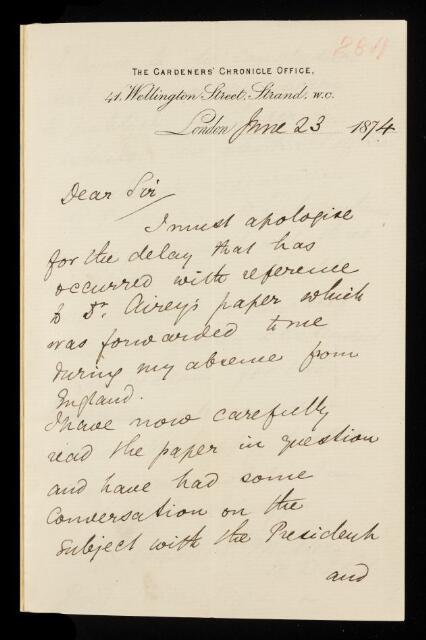 2811
THE GARDENERS' CHRONICLE OFFICE,
41, Wellington Street, Strand, W.C.
London June 23 1874
Dear Sir
I must apologise
for the delay that has
occurred with reference
to Dr. Airey's paper which
was forwarded to me
during my absence from
England.
I have now carefully
read the paper in question
and have had some
conversation on the
subject with the President
and